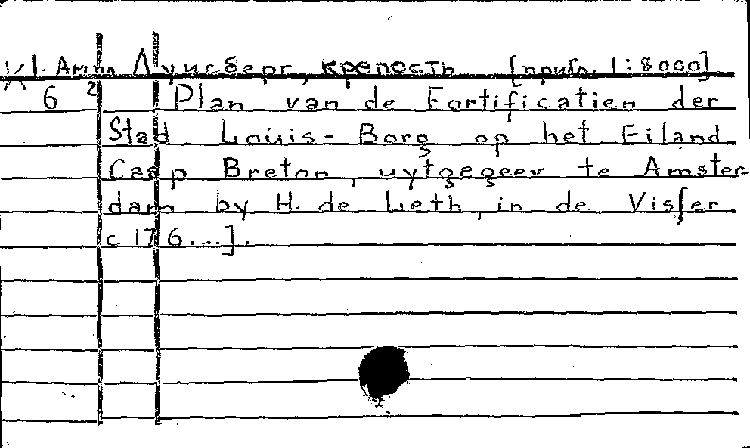 К1. Ампл Луисберг, крепость [пригл. 1:8000]
6 2 Plan van de Fortificatien der
Stad Louis-Borg op het Eiland
Caap Breton, uytgegeev te Amster-
dam by H. de Leth, in de Visſer
[c 176...].